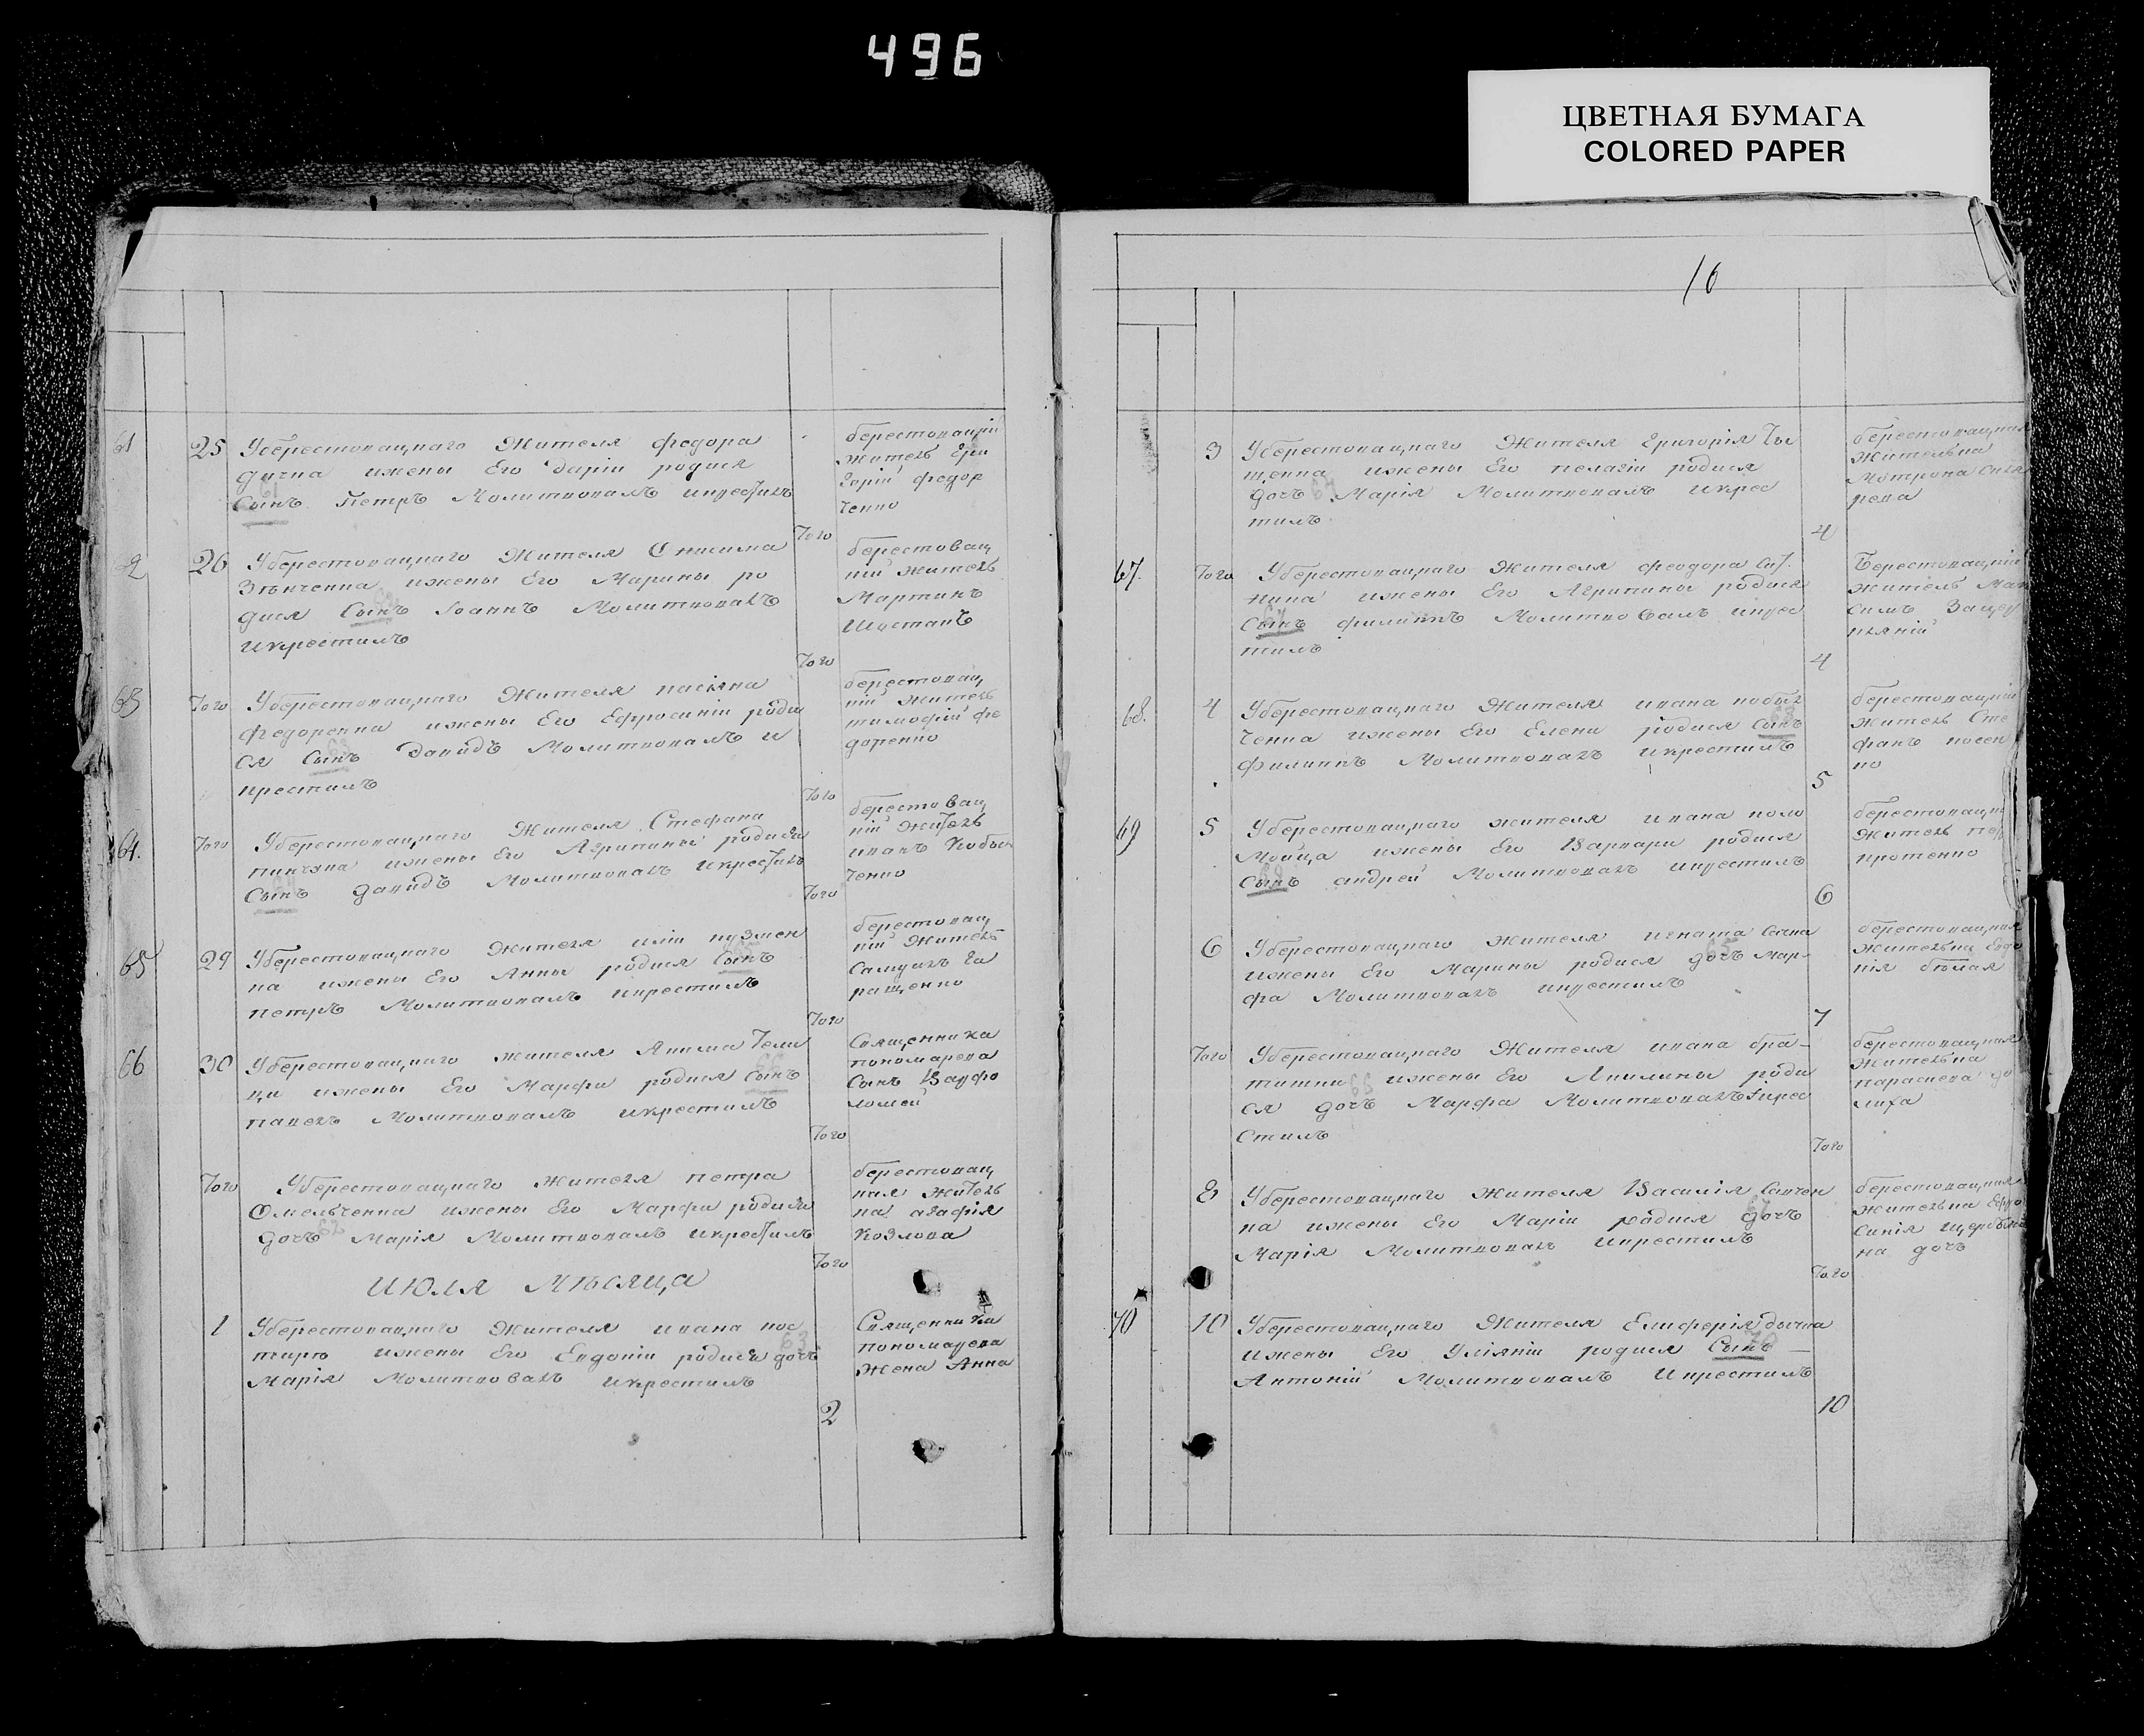 496
ЦВЕТНАЯ БУМАГА
COLORED PAPER
61
25
Уберестовацкаго Жителя федора
дичка ижены Его Даріи родися
Сынъ Петръ Молитвовалъ икрестилъ
берестовацкій
житель Гри
горій федор
ченко
Того
62
26
Уберестовацкаго Жителя Онисима
ижены Его Марины ро
дися Сынъ Іоаннъ Молитвовалъ
икрестилъ
берестовац
кій житель
Мартинъ
Шостакъ
Того
63
Того
Уберестовацкаго Жителя касіяна
Федоренка ижены Его Ефросиніи роди
ся Сынъ Давидъ Молитвовалъ и
крестилъ
берестовац
кій житель
тимофій фе
доренко
Того
64.
Того
Уберестовацкаго Жителя Стефана
ижены Его Агрипины родися
Сынъ давидъ Молитвовалъ икрестилъ
берестовац
кій житель
иванъ Кобы
ченко
Того
65
29
Уберестовацкаго жителя иліи кузмен
ка ижены Его Анны родися Сынъ
петръ Молитвовалъ икрестилъ
берестовац
кій Житель
Самуилъ Га
ращенко
Того
66
30
Уберестовацкаго жителя Якима
ижены Его Марфи родися Сынъ
павелъ Молитвовалъ икрестилъ
Священника
пономарева
Сынъ Варфо
ломей
Того
Того
Уберестовацкаго жителя петра
Омельченка ижены Его Марфи родися
дочъ Марія Молитвовалъ икрестилъ
берестовац
кая житель
ка агафія
Козлова
Того
Июля Мѣсяца
1
Уберестовацкаго Жителя ивана кос
тиря ижены Его Евдокіи родися дочъ
Марія Молитвовалъ икрестилъ
Священника
пономарева
жена Анна
2
16
3
Уберестовацкаго Жителя григорія
ижены Его пелагіи родися
дочъ Марія Молитвовалъ икрес
тилъ
берестовацкая
жителька
Мотрона
4
67.
Того
Уберестовацкаго Жителя феодора
ижены Его Агрипины родися
Сынъ филиппъ Молитвовалъ икрес
тилъ
Берестовацкій
житель Мак
симъ
4
68.
4
Уберестовацкаго Жителя ивана кобы
ченка ижены Его Елени родися Сынъ
Филиппъ Молитвовалъ икрестилъ
берестовацкій
житель Сте
фанъ косен
ко
5
69
5
Уберестовацкаго жителя ивана коло
мойца ижены Его Варвари родися
Сынъ андрей Молитвовалъ икрестилъ
берестовацкі
Житель
6
6
Уберестовацкаго жителя игната
ижены Его Марины родися дочъ мар
фа Молитвовалъ икрестилъ
берестовацкая
жителька Евдо
кія бѣлая
7
Того
Уберестовацкаго Жителя ивана бра-
тишки ижены Его Акилины роди
ся дочъ Марфа Молитвовалъ икрес
тилъ
берестовацкая
жителька
параскева
Того
8
Уберестовацкаго жителя Василія Савчен
ка ижены Его Маріи родися дочъ
Марія Молитвовалъ икрестилъ
берестовацкая
жителька Ефро
синія
дочъ
Того
70
10
Уберестовацкаго Жителя Елиферія дычка
ижены Его Уліяніи родися Сынъ
Антоній Молитвовалъ икрестилъ
10